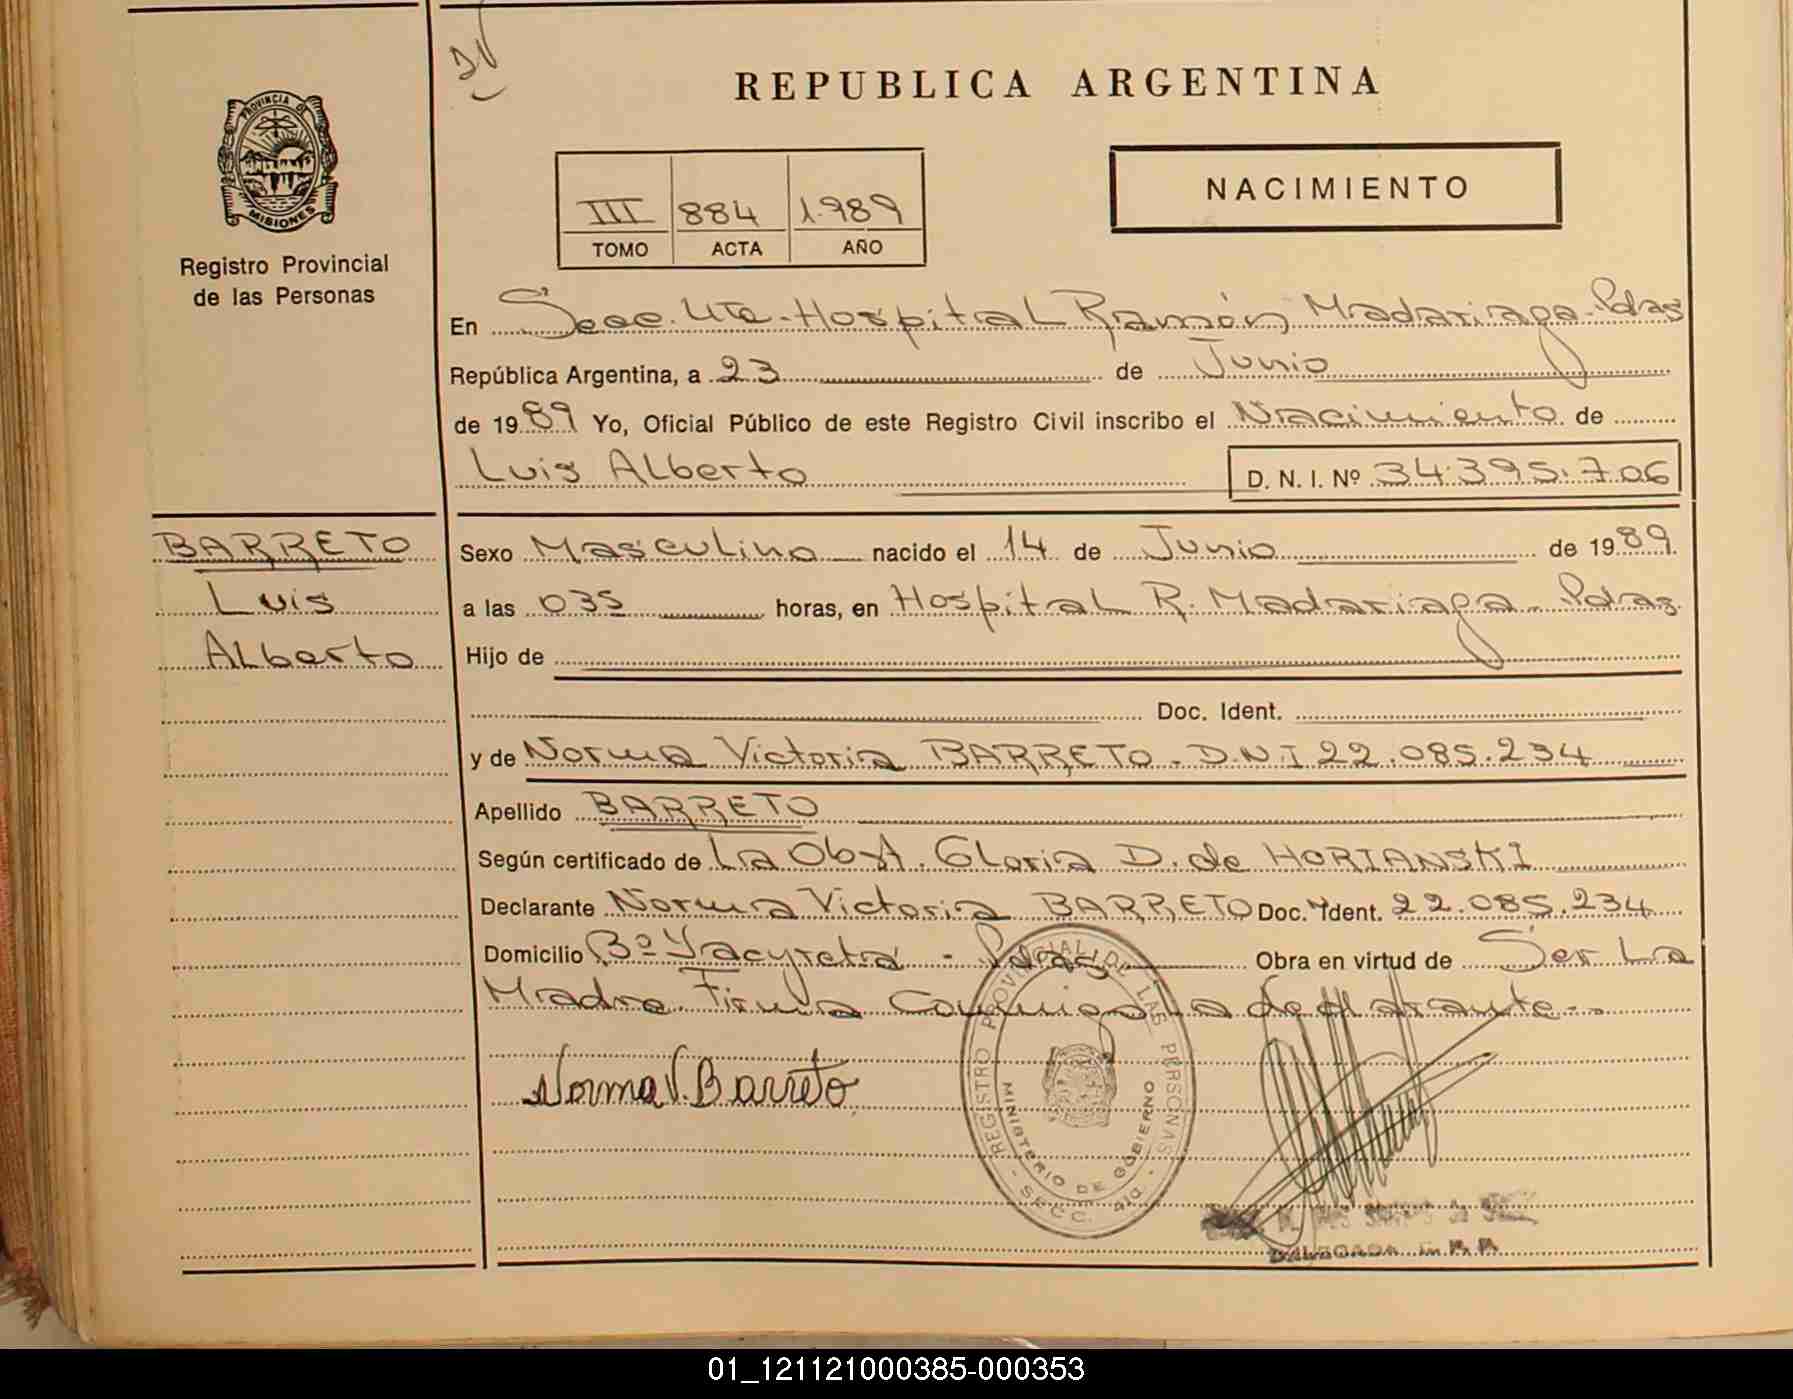 REPUBLICA ARGENTINA
PROVINCIA D
MISIONES
Registro Provincial
de las Personas
III 884 1.989
TOMO ACTA AÑO
NACIMIENTO
En Secc. Uta. Hospital Ramón Madariaga - Pdas
República Argentina, a 23 de Junio
de 1989 Yo, Oficial Público de este Registro Civil inscribo el Nacimiento de
Luis Alberto D. N. I. Nº 34.395.706
BARRETO
Luis
Alberto
Sexo Masculino nacido el 14 de Junio de 1989.
a las 035 horas, en Hospital R. Madariaga - Pdas.
Hijo de
Doc. Ident.
y de Norma Victoria BARRETO - D.N.I 22.085.234
Apellido BARRETO
Según certificado de La Obst. Gloria D. de HORIANSKI
Declarante Norma Victoria BARRETO Doc. Ident. 22.085.234
Domicilio Bº Yacyretá - Pdas Obra en virtud de Ser La
Madre. Firma Conmigo La declarante -.
Norma V. Barreto
REGISTRO PROVINCIAL DE LAS PERSONAS
MINISTERIO DE GOBIERNO
SECC.
DELEGADA R. P. P.
01_121121000385-000353